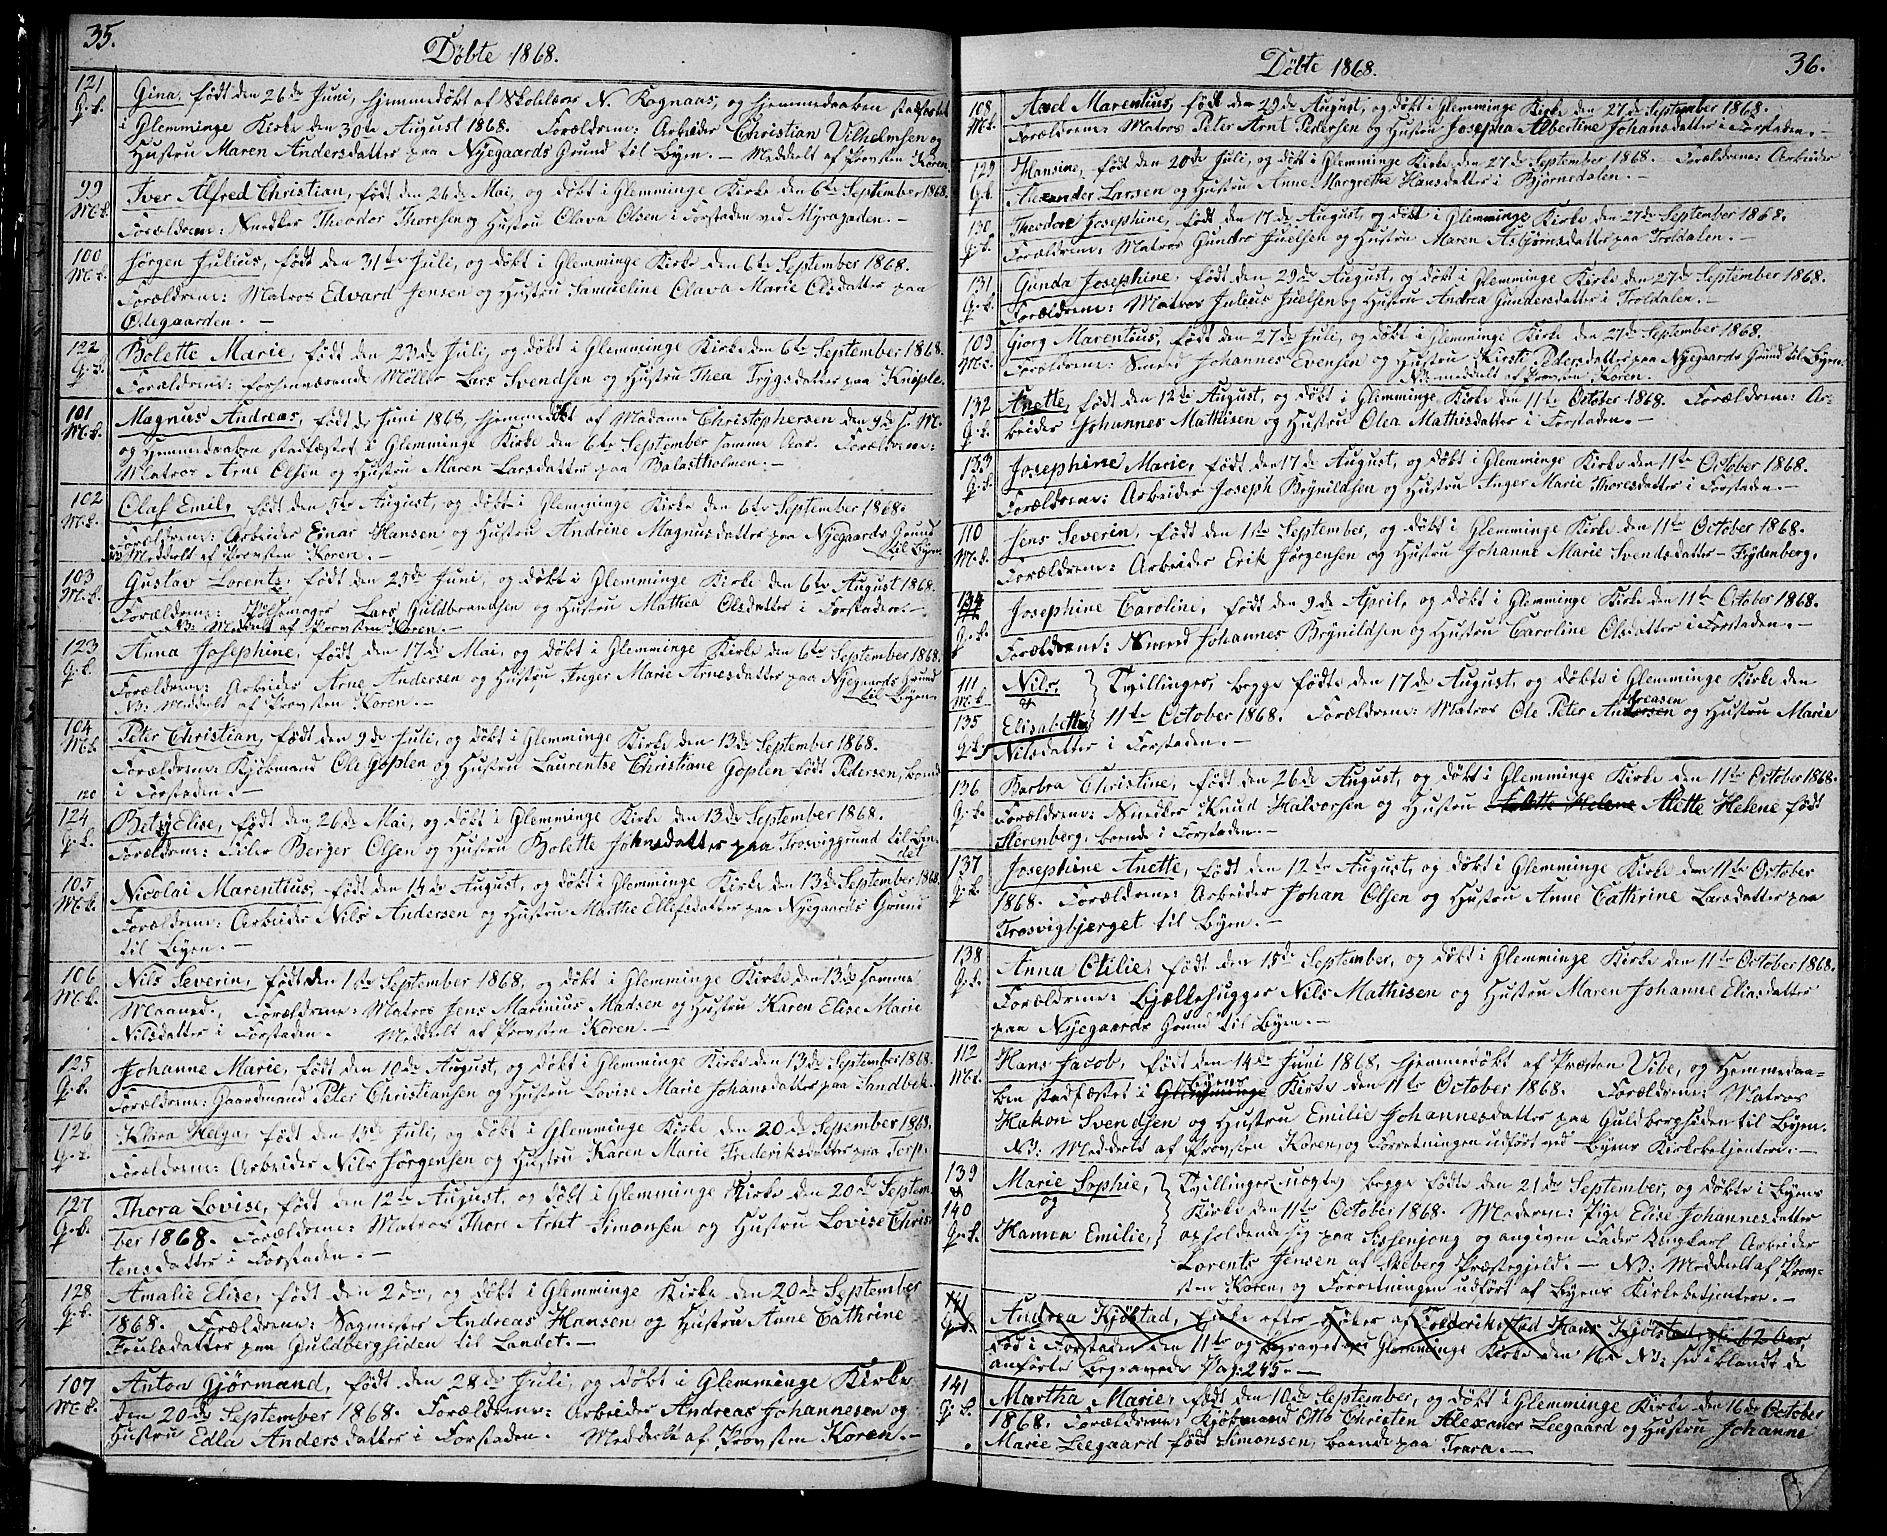 35.
Döbte 1868.
121 Gina, född den 26de Juni, hjemmedöbt af Skolelærer N. Rognaas, og hjemmedaaben stadfæstet
G.b. i Glemminge Kirke den 30te August 1868. Forældrene: Arbeider Christian Vilhelmsen og
Hustru Maren Andersdatter paa Nyegaards Grund til Byen. – Meddelt af Provsten Koren.
99 Iver Alfred Christian, født den 26de Mai, og döbt i Glemminge Kirke den 6te September 1868.
M.b. Forældrene: Snedker Theodor Thoresen og Hustru Olava Olsen i Forstaden ved Myragaden. –
100 Jörgen Julius, født den 31te Juli, og döbt i Glemminge Kirke den 6te September 1868.
M.b. Forældrene: Matros Edvard Jensen og Hustru Samueline Olava Marie Olsdatter paa
Ødegaarden. –
122 Bolette Marie, født den 23de Juli, og döbt i Glemminge Kirke den 6te September 1868.
G.b. Forældrene: forhenværende Möller Lars Svendsen og Hustru Thea Trygsdatter paa Kniple.
101 Magnus Andreas, født de Juni 1868, hjemmedöbt af Madame Christophersen den 9de s. M.
M.b. og Hjemmedaaben stadfæstet i Glemminge Kirke den 6te September samme Aar. Forældrene:
Matros Arne Olsen og Hustru Maren Larsdatter paa Balastholmen. –
102 Olaf Emil, født den 5te August, og döbt i Glemminge Kirke den 6te September 1868.
M.b. Forældrene: Arbeider Einar Hansen og Hustru Andrine Magnusdatter paa Nyegaards Grund
NB. Meddelt af Provsten Koren. – til Byen.
103 Gustav Lorents, født den 23de Juni, og döbt i Glemminge Kirke den 6te August 1868.
M.b. Forældrene: Lars Guldbrandsen og Hustru Mathea Olsdatter i Forstaden. –
NB. Meddelt af Provsten Koren. –
123 Anna Josephine, født den 17de Mai, og döbt i Glemminge Kirke den 6te September 1868.
G.b. Forældrene: Arbeider Arne Andersen og Hustru Inger Marie Arnesdatter paa Nyegaards Grund
NB. Meddelt af Provsten Koren. – til Byen.
104 Peter Christian, født den 9de Juli, og döbt i Glemminge Kirke den 13de September 1868.
M.b. Forældrene: Kjöbmand Ole Goplen og Hustru Laurentse Christiane Goplen født Pedersen, boende
120 i Forstaden. –
124 Betzy Elise, født den 26de Mai, og döbt i Glemminge Kirke den 13de September 1868.
G.b. Forældrene: Berger Olsen og Hustru Bolette Johnsdatter paa Trosviggrund til Lan-
det
105 Nicolai Marentius, født den 14de August, og döbt i Glemminge Kirke den 13de September 1868.
M.b. Forældrene: Arbeider Nils Andersen og Hustru Marthe Ellefsdatter paa Nyegaards Grund
til Byen. –
106 Nils Severin, født den 1ste September 1868, og döbt i Glemminge Kirke den 13de samme
M.b. Maaned. Forældrene: Matros Jens Marinius Madsen og Hustru Karen Elise Marie
Nilsdatter i Forstaden. Meddelt af Provsten Koren. –
125 Johanne Marie, født den 10de August, og döbt i Glemminge Kirke den 13de September 1868.
G.b. Forældrene: Gaardmand Peter Christiansen og Hustru Lovise Marie Johansdatter paa Sandbek.
126 Klara Helga, født den 15de Juli, og döbt i Glemminge Kirke den 20de September 1868.
G.b. Forældrene: Arbeider Nils Jörgensen og Hustru Karen Marie Frederiksdatter paa Torp.
127 Thora Lovise, født den 12te August, og döbt i Glemminge Kirke den 20de Septem-
G.b. ber 1868. Forældrene: Matros Thore Arnt Simonsen og Hustru Lovise Chris-
tensdatter i Forstaden. –
128 Amalie Elise, født den 2den, og döbt i Glemminge Kirke den 20de September
G.b. 1868. Forældrene: Sagmester Andreas Hansen og Hustru Anne Cathrine
Truilsdatter paa Guldbergsiden til Landet. –
107 Anton Gjörmand, født den 28de Juli, og döbt i Glemminge Kirke
M.b. den 20de September 1868. Forældrene: Arbeider Andreas Johannesen og
Hustru Edla Andersdatter i Forstaden. Meddelt af Provsten Koren. –
Döbte 1868. 36.
108 Axel Marentius, født den 29de August, og döbt i Glemminge Kirke den 27de September 1868.
M.b. Forældrene: Matros Peter Arnt Pedersen og Hustru Josepha Albertine Johansdatter i Forstaden. –
129 Hansine, født den 20de Juli, og döbt i Glemminge Kirke den 27de September 1868. Forældrene: Arbeider
G.b. Alexander Larsen og Hustru Anne Margrethe Hansdatter i Bjørnedalen. –
130 Theodore Josephine, født den 17de August, og döbt i Glemminge Kirke den 27de September 1868.
G.b. Forældrene: Matros Gunder Juelsen og Hustru Maren Asbjörnsdatter paa Troldalen. –
131 Gunda Josephine, født den 29de August, og döbt i Glemminge Kirke den 27de September 1868.
G.b. Forældrene: Matros Julius Juelsen og Hustru Andrea Gundersdatter i Troldalen. –
109 Georg Marentius, født den 27de Juli, og döbt i Glemminge Kirke den 27de September 1868.
M.b. Forældrene: Smed Johannes Evensen og Hustru Kirsti Pedersdatter paa Nyegaards Grund til Byen.
NB. meddelt af Provsten Koren.
132 Anette, født den 12te August, og döbt i Glemminge Kirke den 11te October 1868. Forældrene: Ar-
G.b. beider Johannes Mathisen og Hustru Olea Mathisdatter i Forstaden. –
133 Josephine Marie, født den 17de August, og döbt i Glemminge Kirke den 11te October 1868.
G.b. Forældrene: Arbeider Joseph Brynildsen og Hustru Inger Marie Thoresdatter i Forstaden. –
110 Jens Severin, født den 11te September, og döbt i Glemminge Kirke den 11te October 1868.
M.b. Forældrene: Arbeider Erik Jörgensen og Hustru Johanne Marie Svendsdatter – Frydenberg.
134 Josephine Caroline, født den 9de April, og döbt i Glemminge Kirke den 11te October 1868.
G.b. Forældrene: Smed Johannes Brynildsen og Hustru Caroline Olsdatter i Forstaden. –
111 Nils, } Tvillinger, begge fødte den 17de August, og döbte i Glemminge Kirke den
M.b. & Andreasen
135 Elisabeth } 11te October 1868. Forældrene: Matros Ole Peter Andersen og Hustru Marie
G.b. Nilsdatter i Forstaden. –
136 Barbra Christine, født den 26de August, og döbt i Glemminge Kirke den 11te October 1868.
G.b. Forældrene: Snedker Knud Halvorsen og Hustru Helene Mette Helene født
Herenberg, boende i Forstaden. –
137 Josephine Anette, født den 12te August, og döbt i Glemminge Kirke den 11te October
G.b. 1868. Forældrene: Arbeider Johan Olsen og Hustru Anne Cathrine Larsdatter paa
Trosvigbjerget til Byen. –
138 Anna Otilie, født den 15de September, og döbt i Glemminge Kirke den 11te October 1868.
G.b. Forældrene: Bjælkehugger Nils Mathisen og Hustru Maren Johanne Eliasdatter
paa Nyegaards Grund til Byen. –
112 Hans Jacob, født den 14de Juni 1868, hjemmedöbt af Præsten Vibe, og Hjemmedaa-
M.b. Byens
ben stadfæstet i Glemminge Kirke den 11te October 1868. Forældrene: Matros
Hakon Svendsen og Hustru Emilie Johannesdatter paa Guldbergsiden til Byen.
NB: Meddelt af Provsten Koren, og Forretningen udført ved Byens Kirkebetjenter. –
139 Marie Sophie, } Tvillinger (uægte) begge fødte den 21de September, og döbte i Byens
& og
140 Kirke den 11te October 1868. Moderen: Pige Elise Johannesdatter
G.b. Hanna Emilie, } opholdende sig paa og angiven Fader Ungkarl Arbeider
Lorents Jensen af Skeberg Præstegjeld. – NB: Meddelt af Prov-
sten Koren, og Forretningen udført af Byens Kirkebetjenter. –
141 Andrea Kjölstad, Enke efter af Frederikstad Hans Kjölstad, 62 Aar,
G.b. Død i Forstaden den 11te og begravet paa Glemminge Kirke den 16de NB: se iblandt de
anförte Begravede Pag: 245. –
141 Martha Marie, født den 10de September, og döbt i Glemminge Kirke den 16de October
G.b. 1868. Forældrene: Kjöbmand Otto Christen Alexander Leegaard og Hustru Johanne
Marie Leegaard født Simonsen, boende paa Trara. –